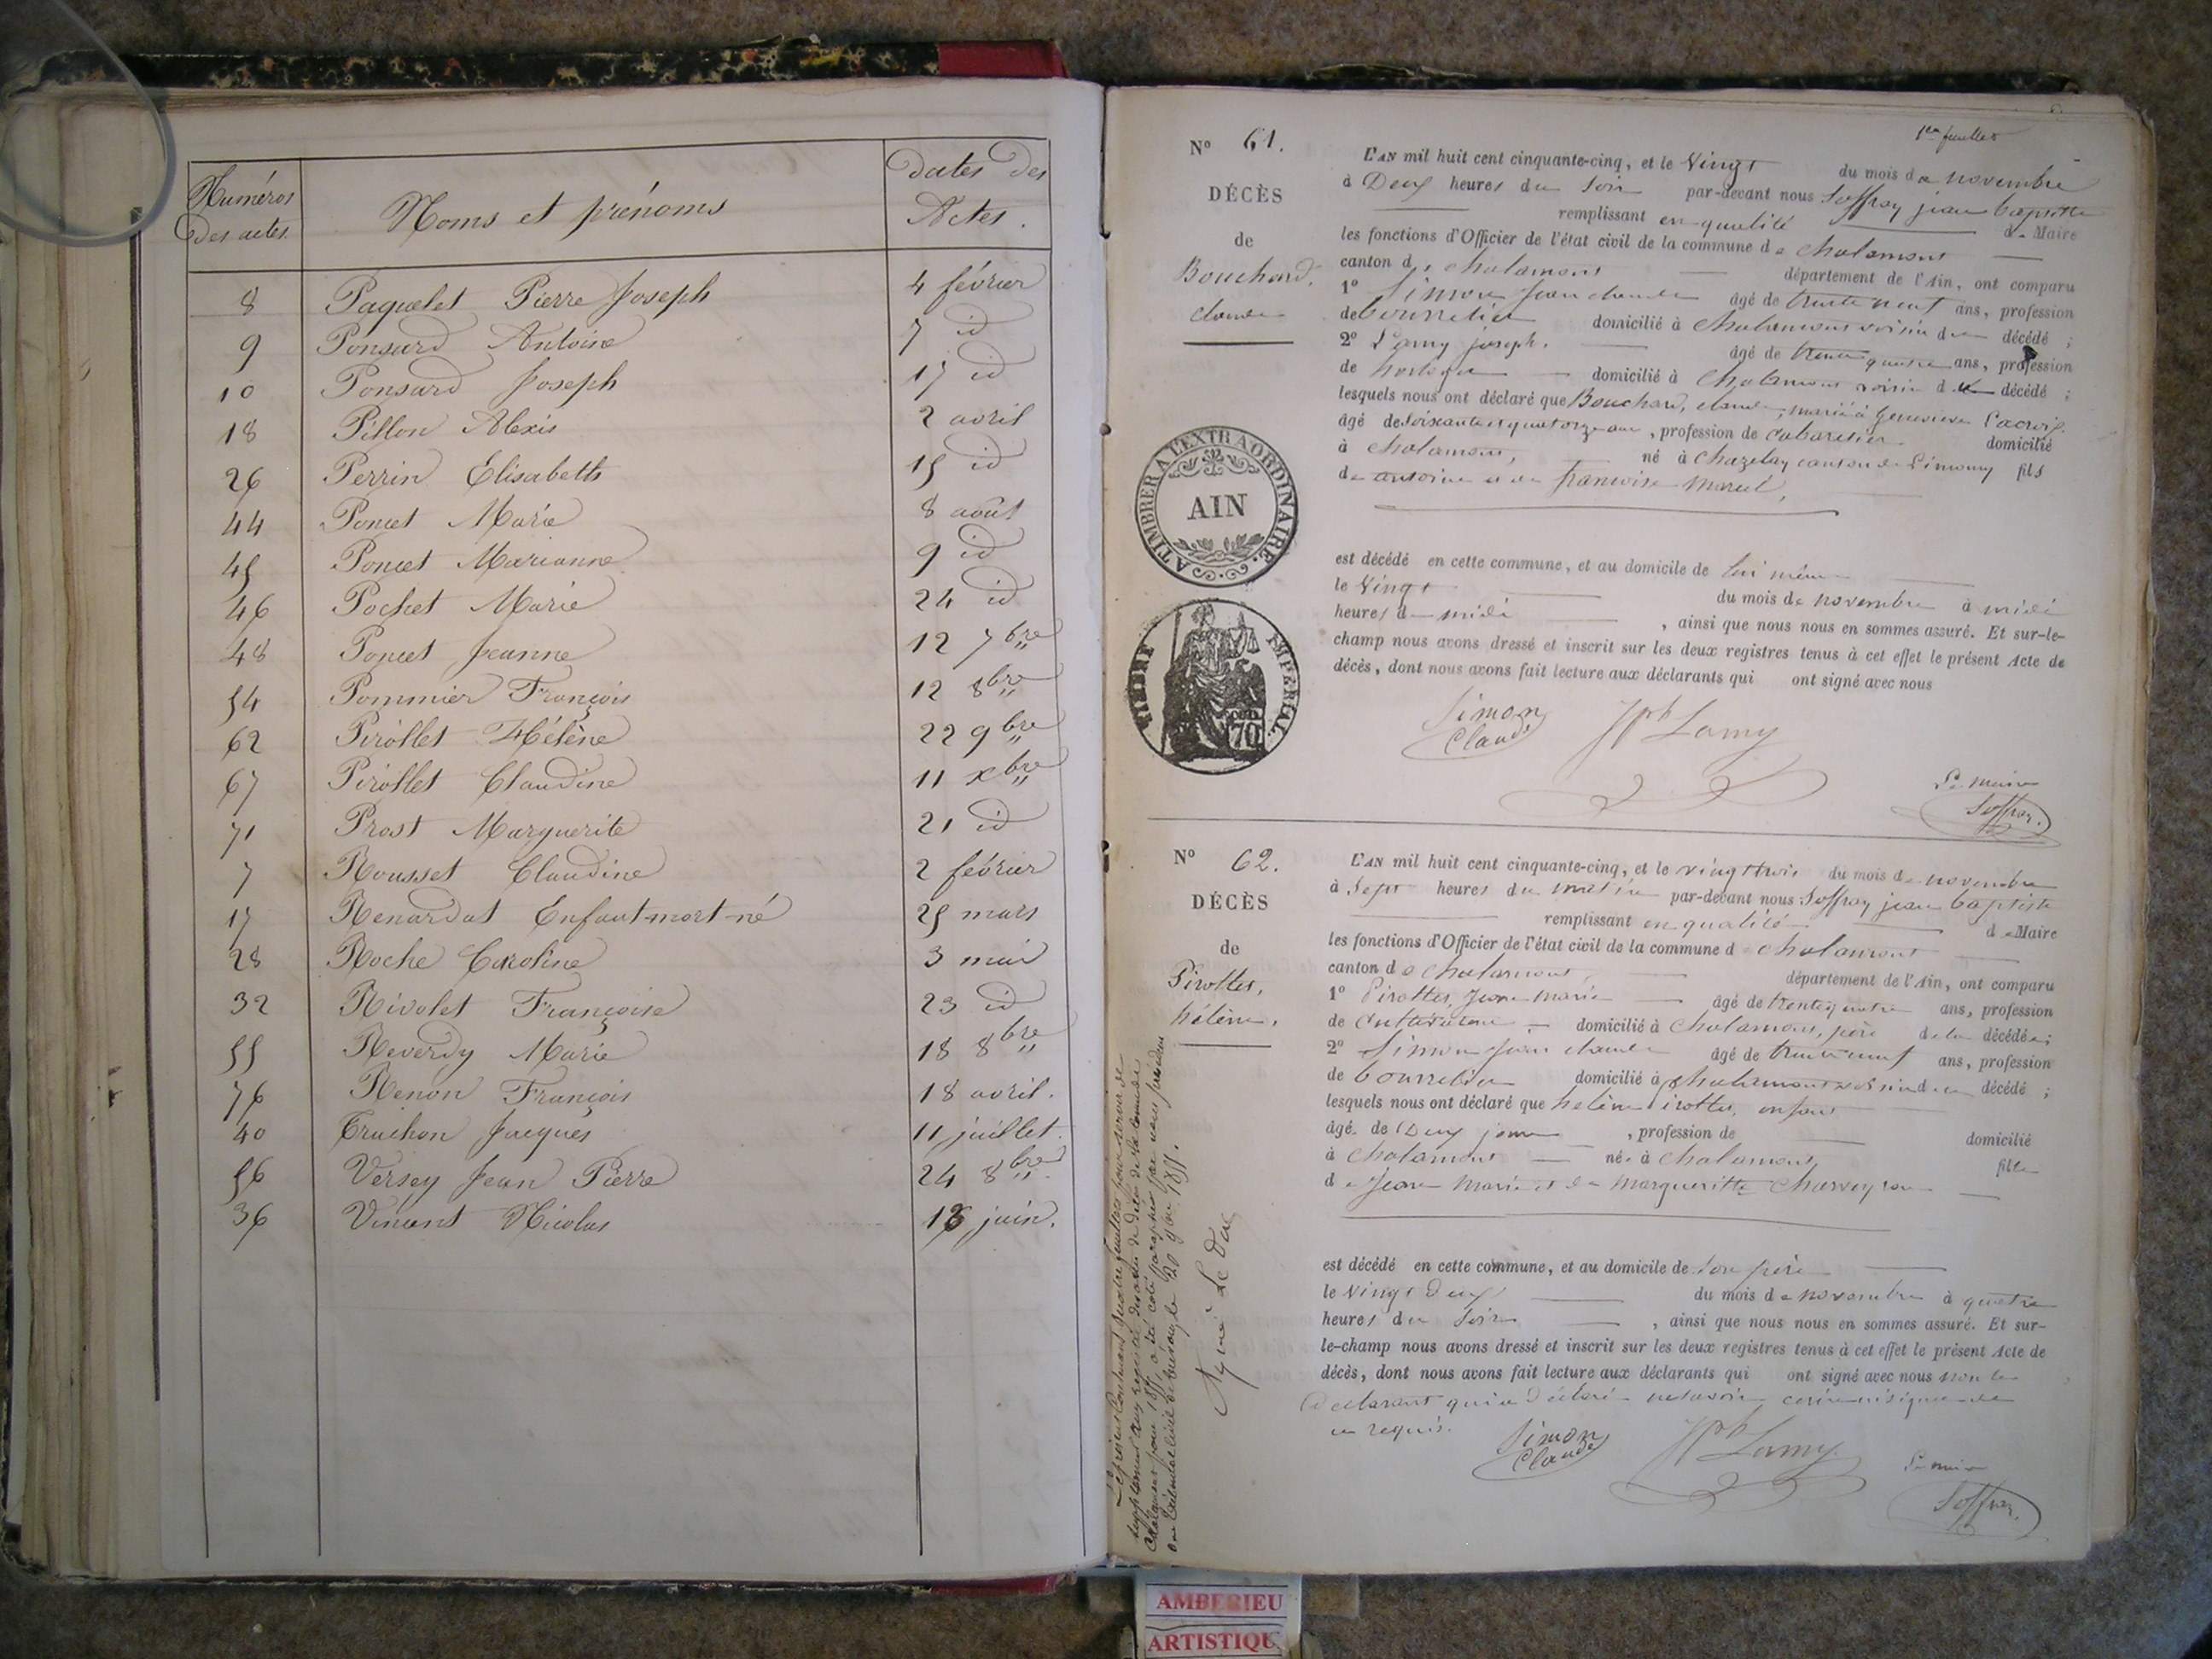 Numéros des actes
Noms et prénoms
Dates des Actes.
8 Paquelet Pierre Joseph 4 février
9 Ponsard Antoine 7 id
10 Ponsard Joseph 17 id
18 Pillon Alexis 2 avril
26 Perrin Elisabeth 15 id
44 Poncet Marie 8 août
45 Poncet Marianne 9 id
46 Pochet Marie 24 id
48 Poncet Jeanne 12 7bre
54 Pommier François 12 8bre
62 Pirollet Hélène 22 9bre
67 Pirollet Claudine 11 xbre
71 Prost Marguerite 21 id
7 Rousset Claudine 2 février
17 Renardat Enfant mort-né 25 mars
28 Roche Caroline 3 mai
32 Rivolet Françoise 23 id
55 Reverdy Marie 18 8bre
76 Renon François 18 avril.
40 Truchon Jacques 11 juillet.
56 Versey Jean Pierre 24 8bre
36 Vincent Nicolas 18 juin.
1er feuillet
N° 61.
DÉCÈS
de
Bouchard,
claude
L'AN mil huit cent cinquante-cinq, et le Vingt du mois de novembre
à Deux heures du soir par-devant nous Soffray jean baptiste
remplissant en qualité de Maire
les fonctions d'Officier de l'état civil de la commune de chalamont
canton de chalamont département de l'Ain, ont comparu
1° Simon Jean claude âgé de trente neuf ans, profession
de bourrelier domicilié à chalamont voisin du décédé ;
2° Lamy joseph. âgé de trente quatre ans, profession
de horloger domicilié à chalamont voisin du décédé ;
lesquels nous ont déclaré que Bouchard, claude, marié à Geneviève Lacroix
âgé de soixante et quatorze ans, profession de cabaretier domicilié
à chalamont, né à Chazelay canton de Limony fils
de antoine et de françoise
est décédé en cette commune, et au domicile de lui même
le Vingt du mois de novembre à midi
heures de midi , ainsi que nous nous en sommes assuré. Et sur-le-
champ nous avons dressé et inscrit sur les deux registres tenus à cet effet le présent Acte de
décès, dont nous avons fait lecture aux déclarants qui ont signé avec nous
Simon Claude
Jph Lamy
Le maire
Soffray.
A TIMBRER A L'EXTRAORDINAIRE.
AIN
TIMBRE IMPÉRIAL
70
N° 62.
DÉCÈS
de
Pirollet,
hélène.
L'AN mil huit cent cinquante-cinq, et le vingt trois du mois de novembre
à Sept heures du matin par-devant nous Soffray jean baptiste
remplissant en qualité de Maire
les fonctions d'Officier de l'état civil de la commune de chalamont
canton de chalamont, département de l'Ain, ont comparu
1° Pirollet, Jean Marie âgé de trente quatre ans, profession
de cultivateur domicilié à chalamont, père de la décédée ;
2° Simon Jean claude âgé de trente neuf ans, profession
de bourrelier domicilié à chalamont voisin de la décédé ;
lesquels nous ont déclaré que hélène Pirollet, enfant
âgé de Deux jours , profession de domicilié
à chalamont née à chalamont, fille
de Jean Marie et de margueritte Charveyron
est décédé en cette commune, et au domicile de son père
le Vingt Deux du mois de novembre à quatre
heures du soir , ainsi que nous nous en sommes assuré. Et sur-
le-champ nous avons dressé et inscrit sur les deux registres tenus à cet effet le présent Acte de
décès, dont nous avons fait lecture aux déclarants qui ont signé avec nous non le
Déclarant qui a déclaré ne savoir écrire ni signer de
ce requis.
Simon Claude
Jph Lamy
Le maire
Soffray.
Le présent contenant quatre feuillets pour servir de
supplément aux registres des actes de décès de la commune de
Chalamont pour 1855, a été coté et paraphé par nous président
du tribunal civil de Trévoux le 20 9bre 1855.
Signé Le Duc
AMBERIEU
ARTISTIQU